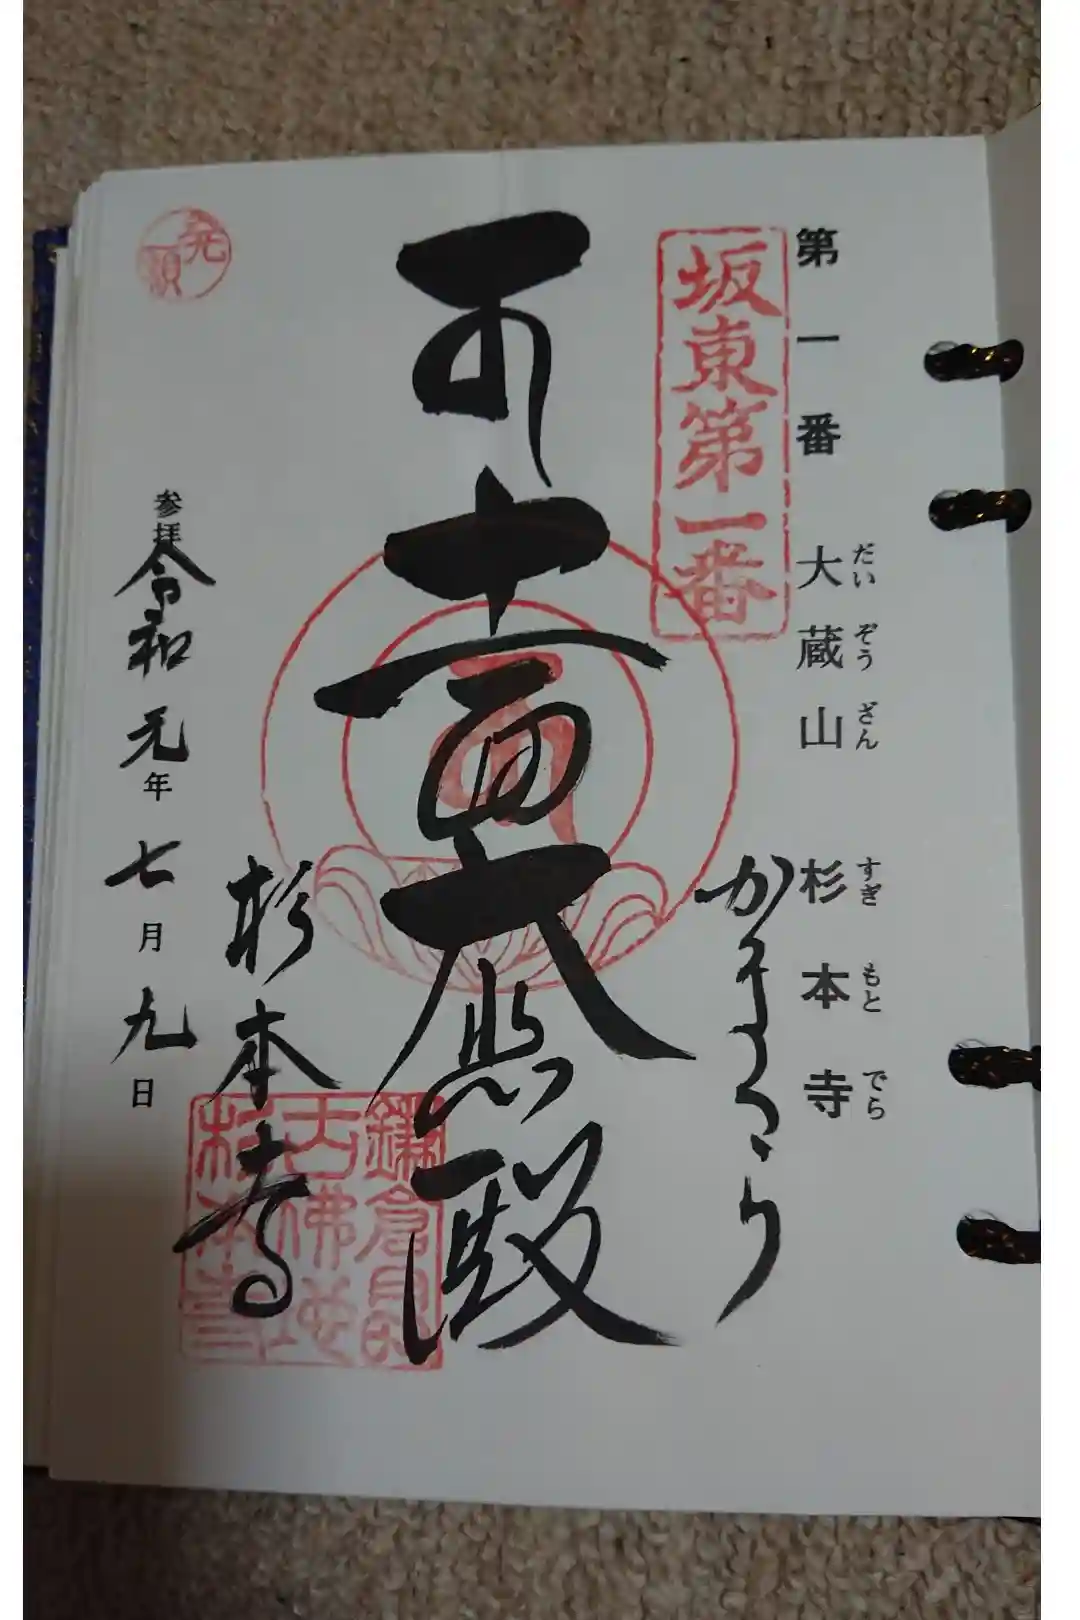 第一番 大蔵山 杉本寺
だいぞうざん すぎもとでら
坂東第一番
かまくら
十一面大悲殿
杉本寺
鎌倉最
古佛地
杉本寺
参拝 令和元年七月九日
発願